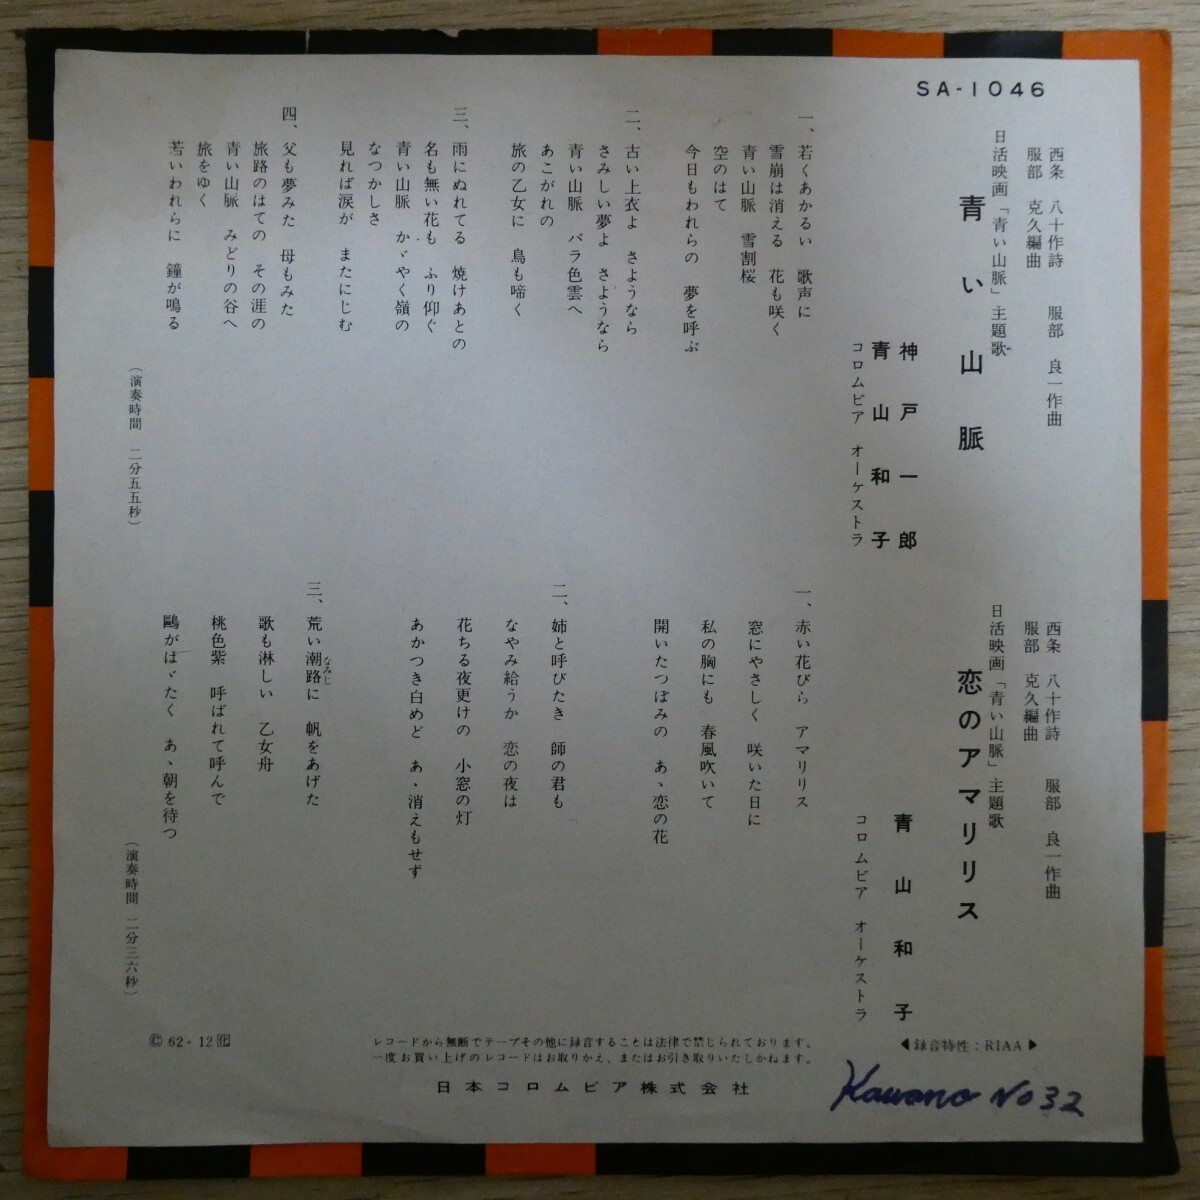 SA-1046
西条 八十作詩 服部 良一作曲
服部 克久編曲
日活映画「青い山脈」主題歌
青い山脈
神戸一郎
青山和子
コロムビア オーケストラ
一、若くあかるい 歌声に
雪崩は消える 花も咲く
青い山脈 雪割桜
空のはて
今日もわれらの 夢を呼ぶ
二、古い上衣よ さようなら
さみしい夢よ さようなら
青い山脈 バラ色雲へ
あこがれの
旅の乙女に 鳥も啼く
三、雨にぬれてる 焼けあとの
名も無い花も ふり仰ぐ
青い山脈 かゞやく嶺の
なつかしさ
見れば涙が またにじむ
四、父も夢みた 母もみた
旅路のはての その涯の
青い山脈 みどりの谷へ
旅をゆく
若いわれらに 鐘が鳴る
(演奏時間 二分五五秒)
西条 八十作詩 服部 良一作曲
服部 克久編曲
日活映画「青い山脈」主題歌
恋のアマリリス
青山和子
コロムビア オーケストラ
一、赤い花びら アマリリス
窓にやさしく 咲いた日に
私の胸にも 春風吹いて
開いたつぼみの あゝ恋の花
二、姉と呼びたき 師の君も
なやみ給うか 恋の夜は
花ちる夜更けの 小窓の灯
あかつき白めど あゝ消えもせず
三、荒い潮路に 帆をあげた
なみじ
歌も淋しい 乙女舟
桃色紫 呼ばれて呼んで
鷗がはゞたく あゝ朝を待つ
(演奏時間 二分三六秒)
◀録音特性:RIAA▶
レコードから無断でテープその他に録音することは法律で禁じられております。
一度お買い上げのレコードはお取りかえ、またはお引き取りいたしかねます。
日本コロムビア株式会社
Ⓒ 62・12
Kawano No 32